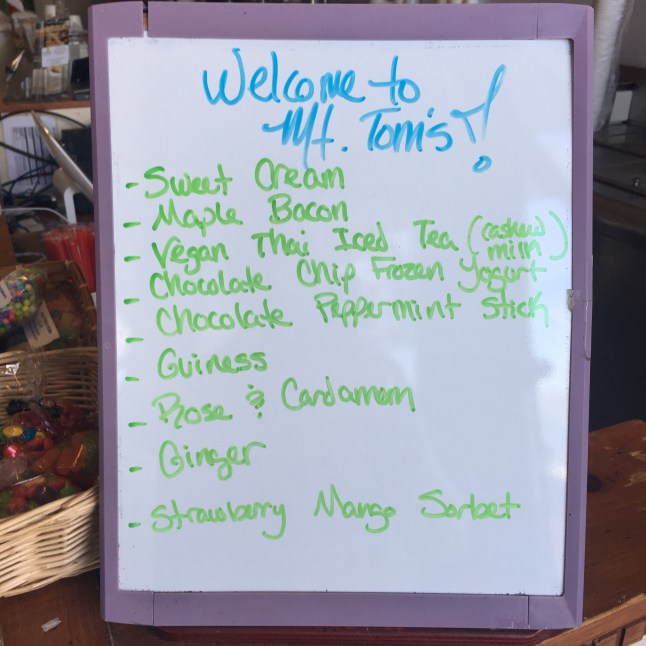 Welcome to
Mt. Tom's!
- Sweet Cream
- Maple Bacon
- Vegan Thai Iced Tea (cashew milk)
- Chocolate Chip Frozen Yogurt
- Chocolate Peppermint Stick
- Guiness
- Rose & Cardamom
- Ginger
- Strawberry Mango Sorbet